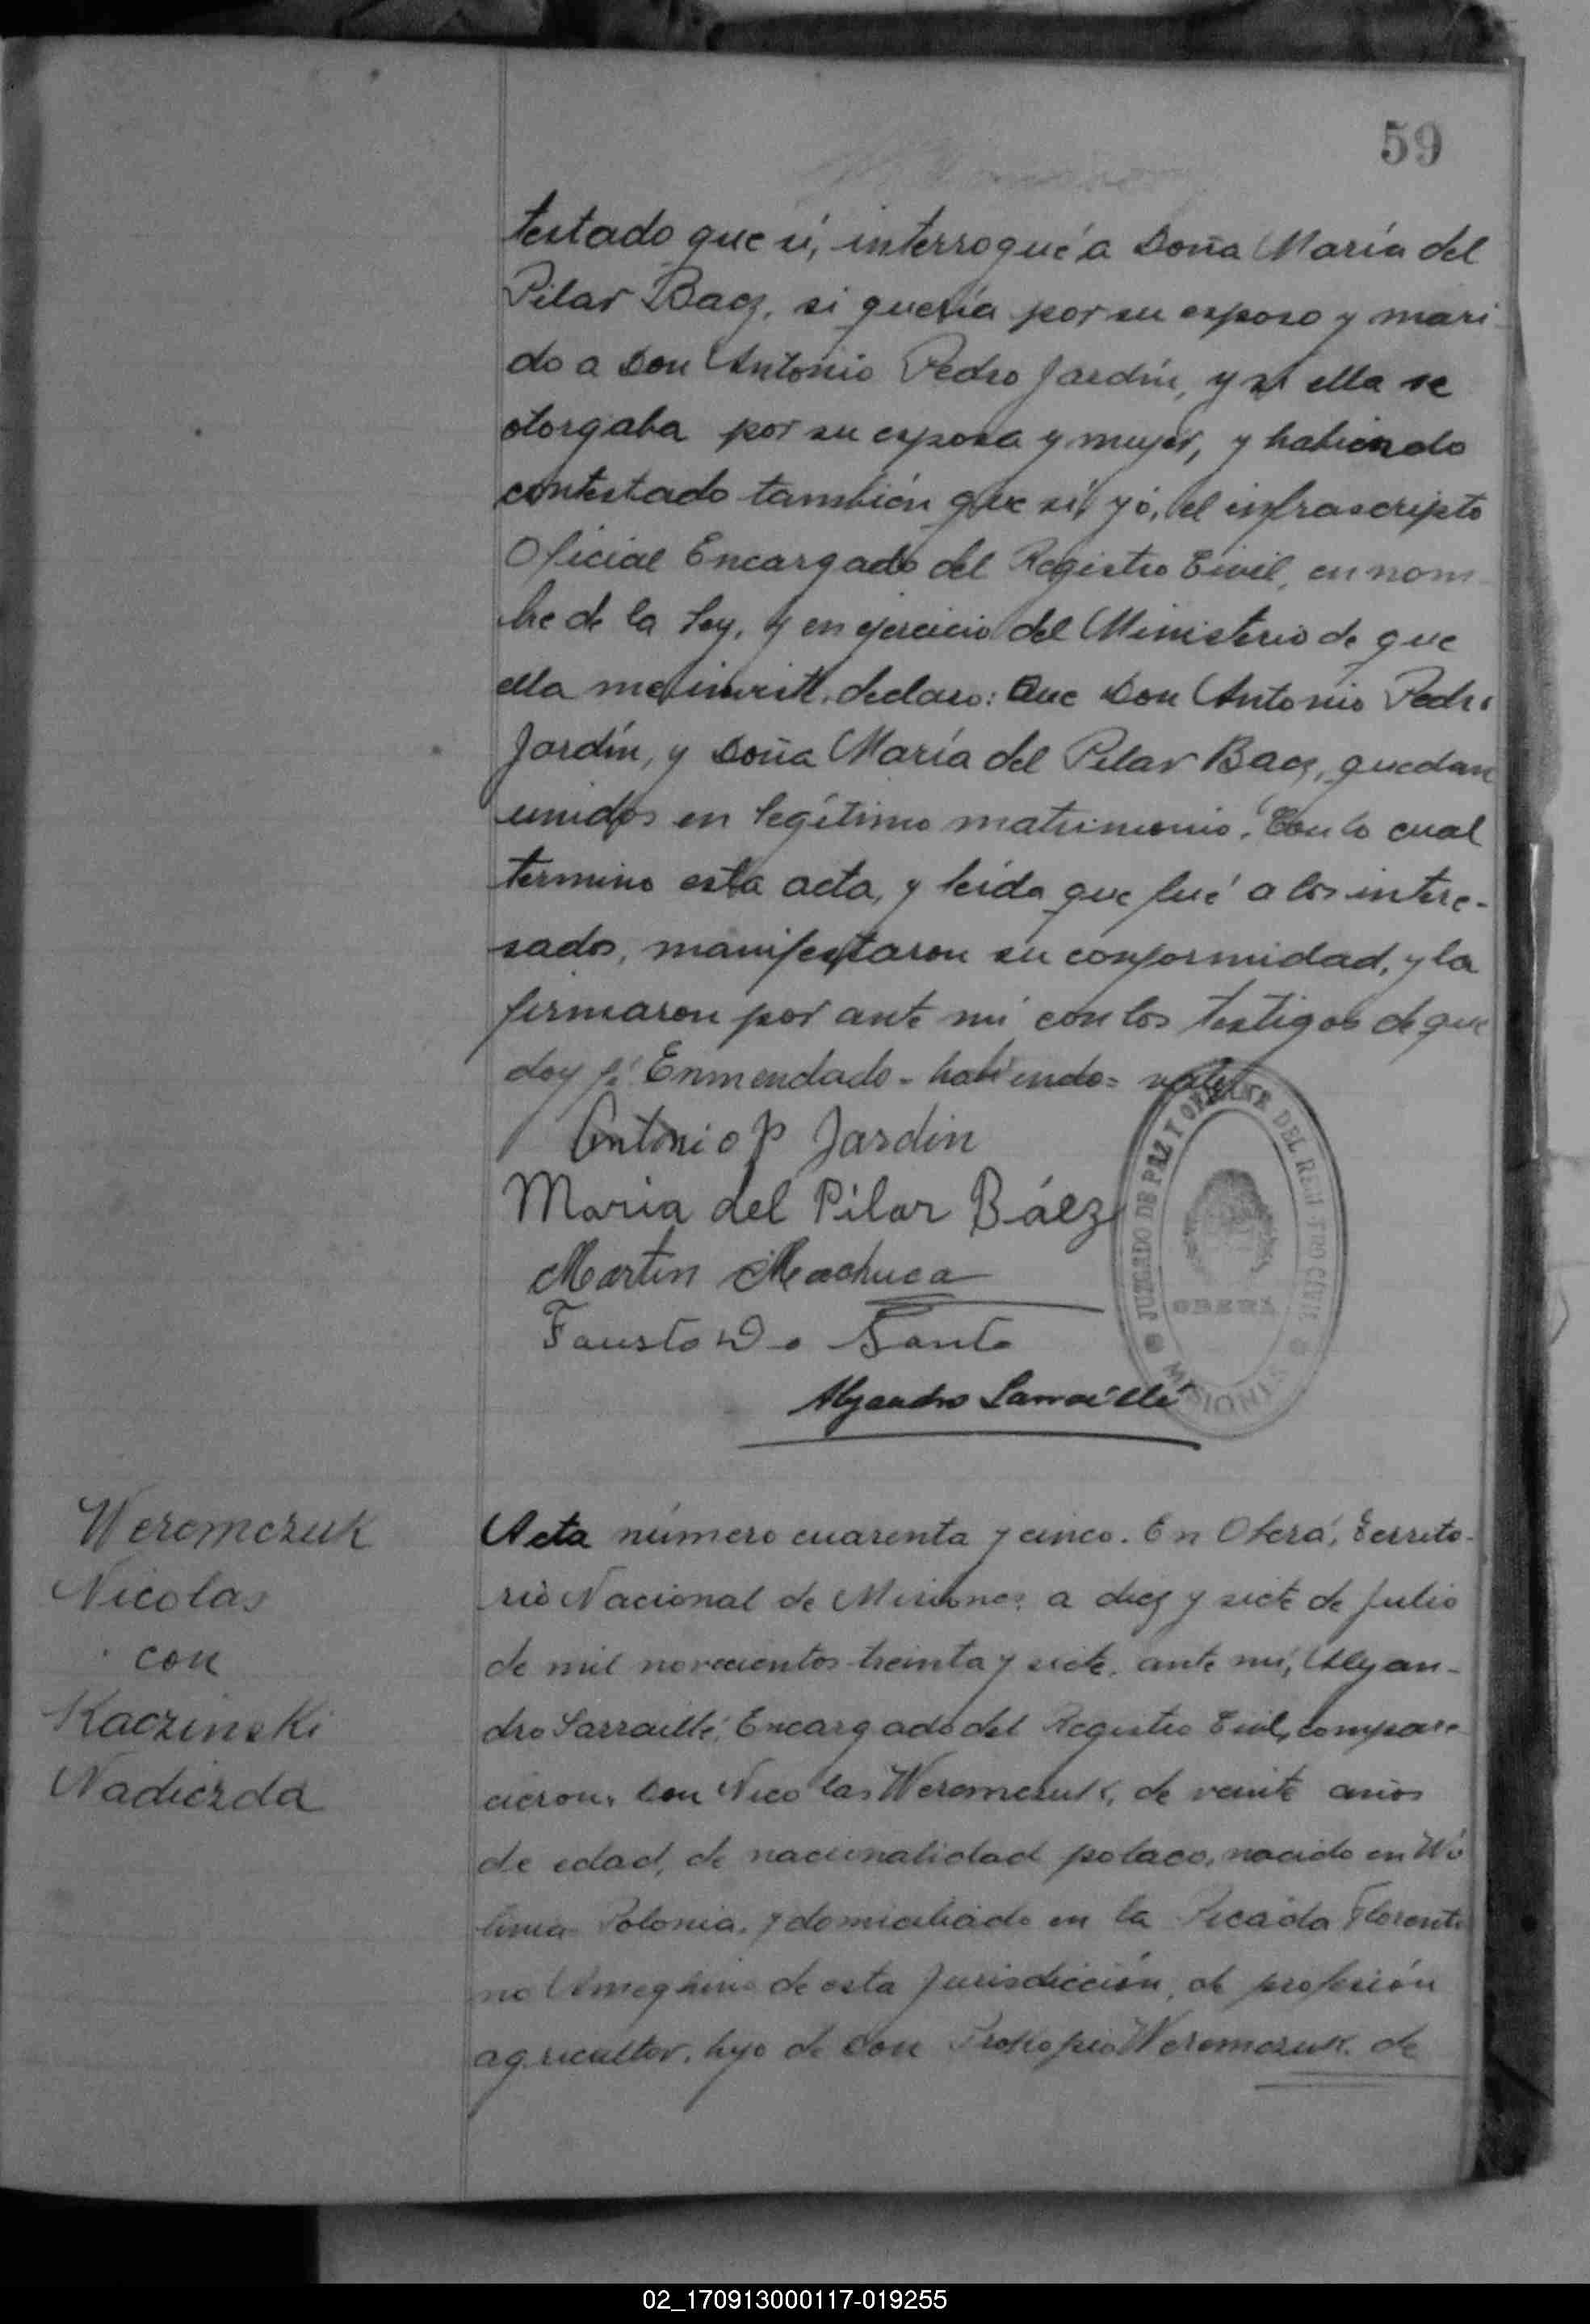 59
testado que sí, interrogué a Doña María del
Pilar Baez, si quería por su esposo y mari-
do a Don Antonio Pedro Jardín, y si ella se
otorgaba por su esposa y mujer, y habiendo
contestado también que sí, yó, el infrascripto
Oficial Encargado del Registro Civil, en nom-
bre de la Ley, y en ejercicio del Ministerio de que
ella me inviste, declaro: Que Don Antonio Pedro
Jardín, y Doña María del Pilar Baez, quedan
unidos en legítimo matrimonio. Con lo cual
termino esta acta, y leída que fué a los intere-
sados, manifestaron su conformidad, y la
firmaron por ante mí con los testigos de que
doy fé. Enmendado = habiendo = vale
Antonio P Jardin
Maria del Pilar Báez
Martin Machuca
Fausto Do Santo
Alejandro Sarraillé
JUZGADO DE PAZ Y OFICINA DEL REGISTRO CIVIL
OBERÁ
MISIONES
Weremczuk
Nicolas
con
Kaczinski
Nadiezda
Acta número cuarenta y cinco. En Oberá, Territo-
rio Nacional de Misiones, a diez y siete de Julio
de mil novecientos treinta y siete, ante mí, Alejan-
dro Sarraillé, Encargado del Registro Civil, compare-
cieron, Don Nicolas Weremczuk, de veinte años
de edad, de nacionalidad polaco, nacido en Wo
linia Polonia, y domiciliado en la Picada Florenti
no Ameghino de esta Jurisdicción, de profesión
agricultor, hijo de Don Prokopio Weremczuk, de
02_170913000117-019255